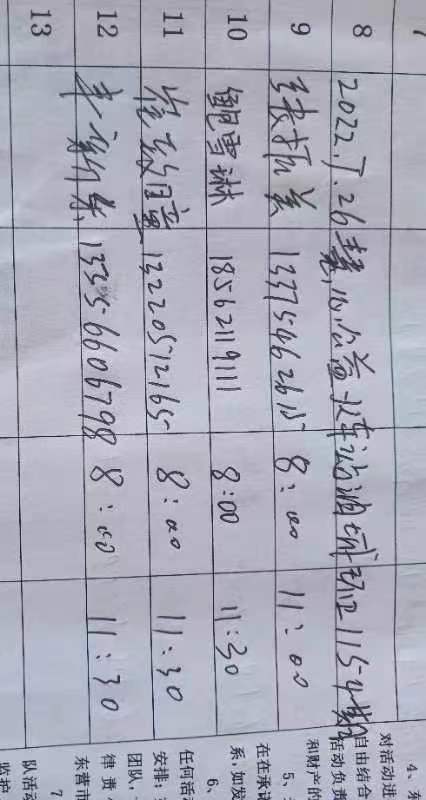 7
8 2022.5.26慧心公益火车站消城动区1154期
9 张振美 13375466265 8:00 11:00
10 鲍雪琳 18562119111 8:00 11:30
11 13220572165 8:00 11:30
12 新东 13356606798 8:00 11:30
13
4、东
对活动进
自由结合
活动负责
和财产的
5、
在在承诺
系,如发
6、
任何活动
安排;
团队,
律责
东营市
7
队活动
监护